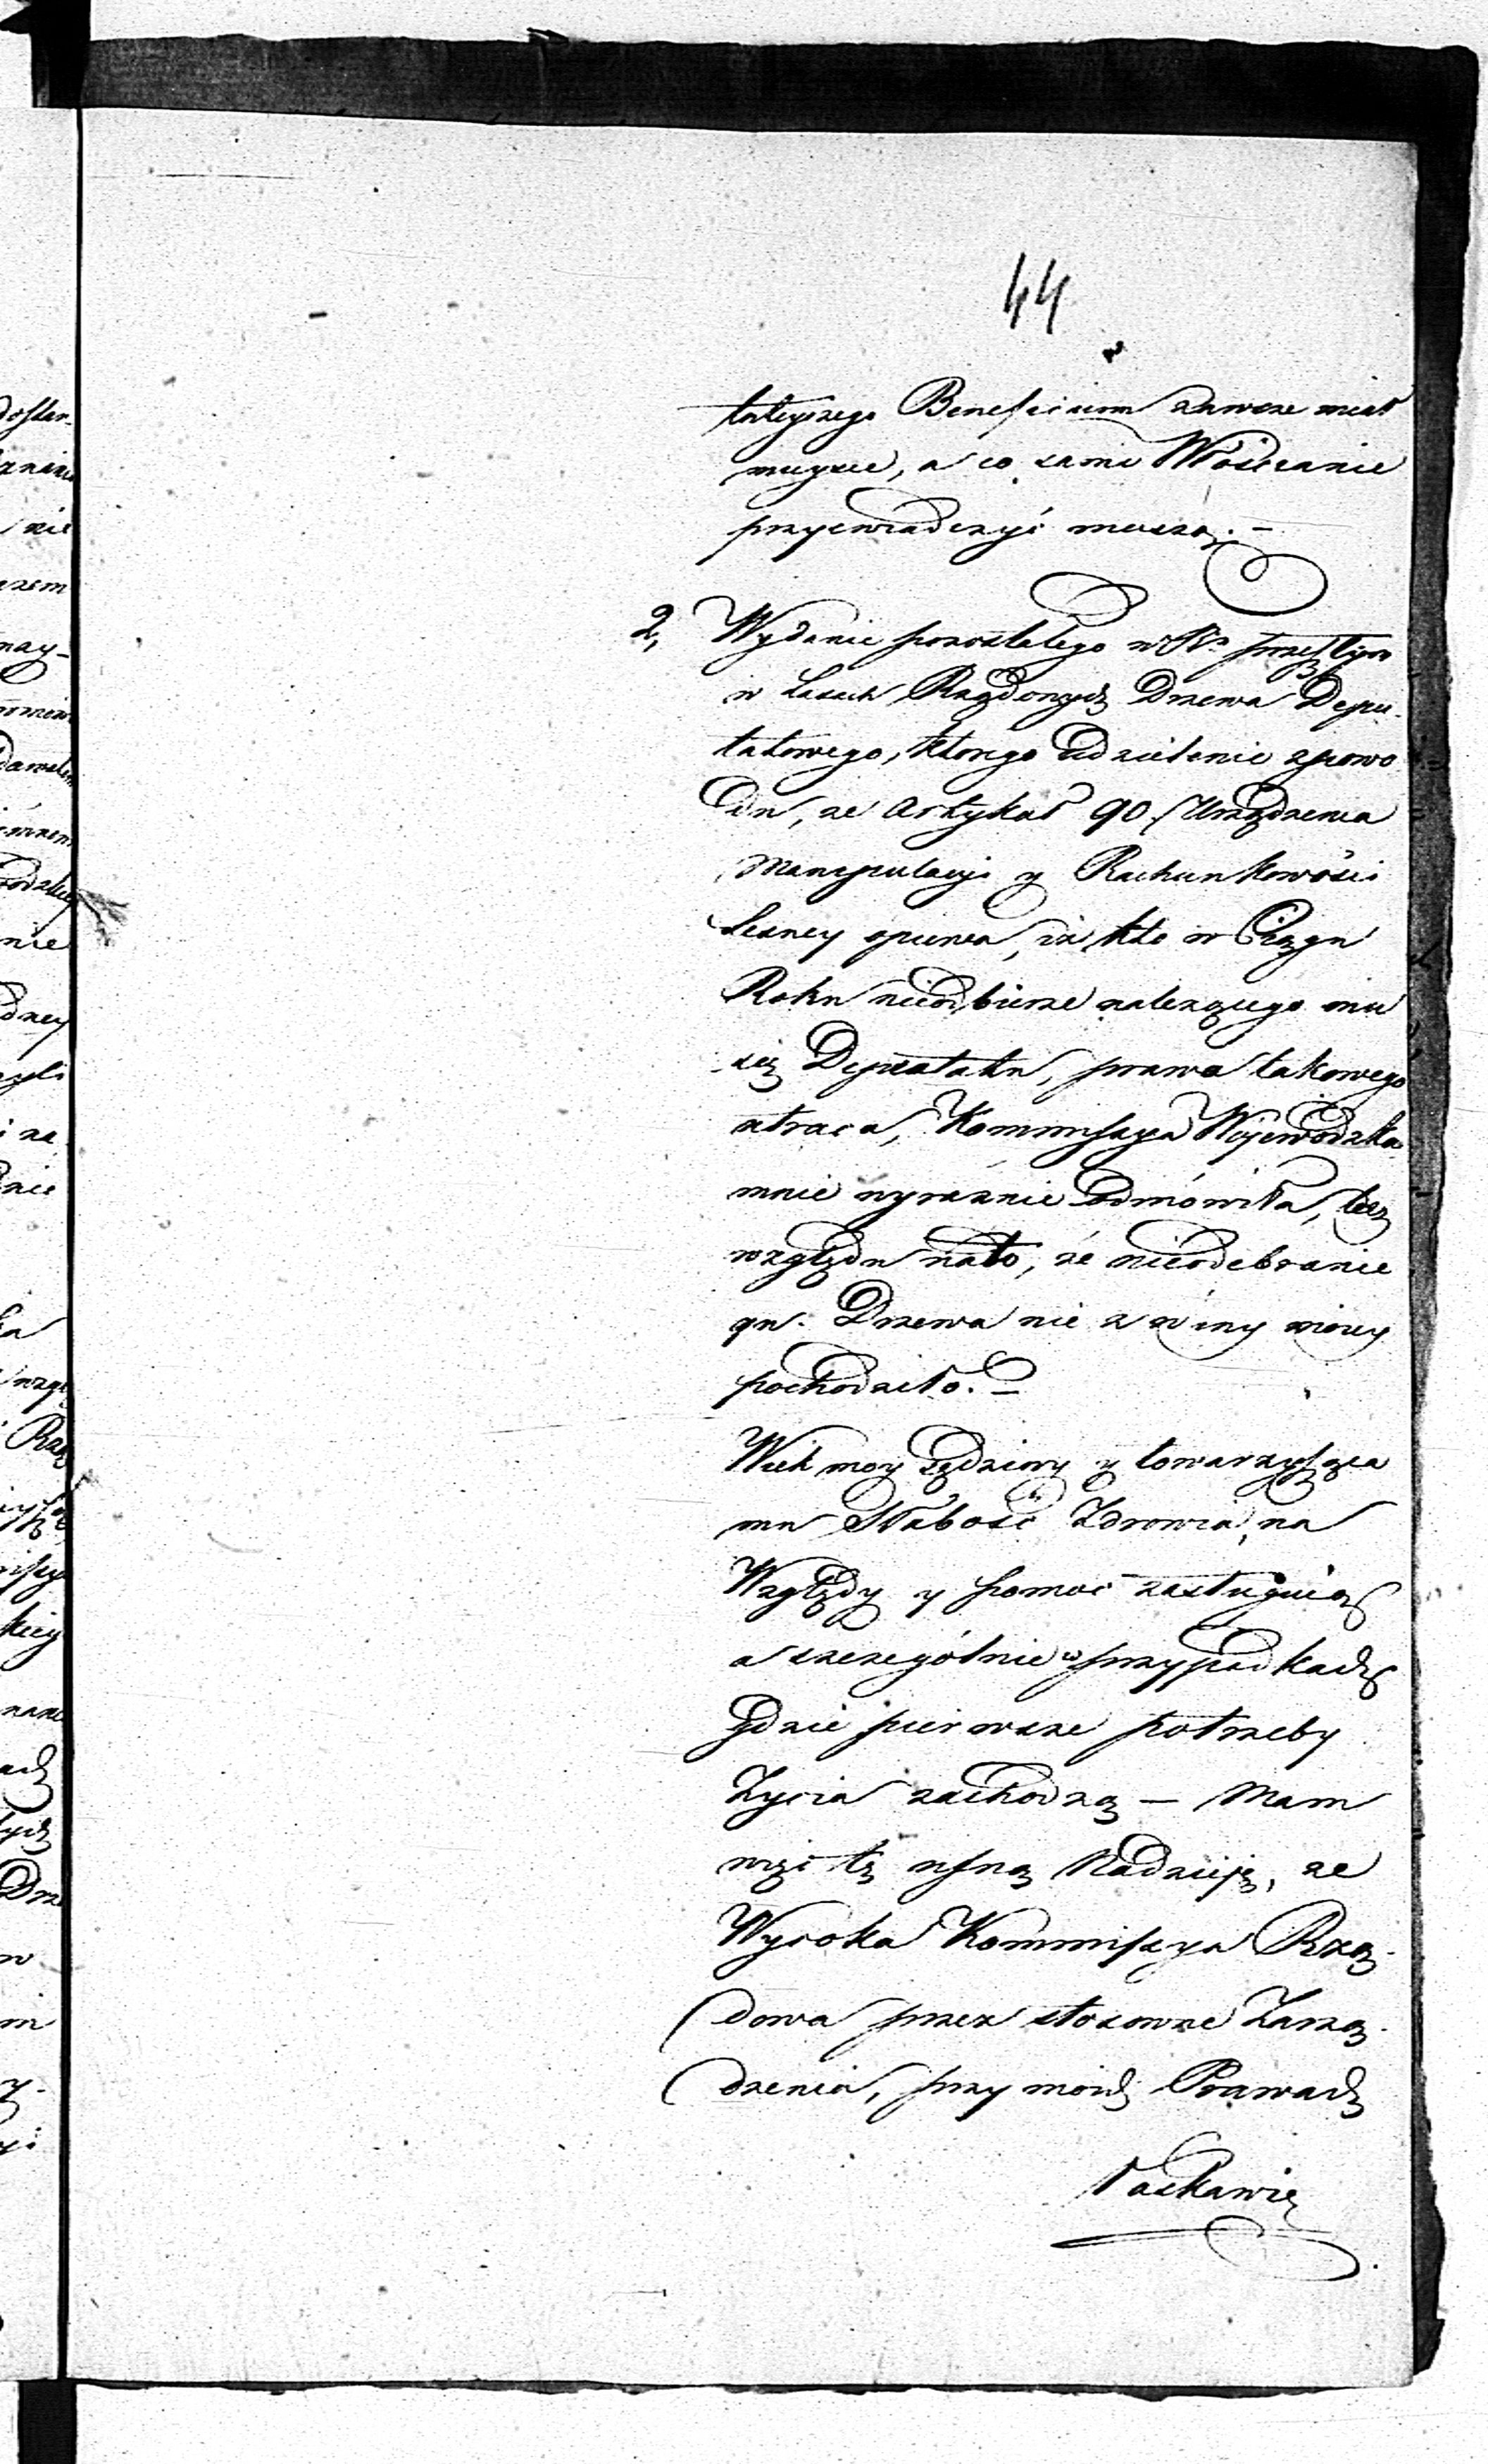 44
tuteyszego Beneficium zawsze miał
mieysce, a co sami Włościanie
przyświadczyć muszą. –
2, Wydanie pozostałego w R. przeszłym
w Lasach Rządowych Drzewa Depu-
tatowego, którego Udzielenie z powo
du, że Artykuł 90. Urządzenia
Manipulacyi y Rachunkowości
Leśney opiewa, iż kto w Ciągu
Roku nieodbierze należącego mu
się Deputatu, prawo takowego
utraca, Kommissya Wojewódzka
mnie wyraźnie odmówiła, bez
względu na to, że nieodebranie
go. Drzewa nie z winy moiey
pochodziło. –
Wiek moy sędziwy y towarzysząca
mu Słabość Zdrowia, na
Względy y pomoc zasługuią
a szczególnie w przypadkach
gdzie pierwsze potrzeby
Życia zachodzą — Mam
więc tę ufną Nadzieję, że
Wysoka Kommissya Rzą-
dowa przez stosowne Zarzą-
dzenia, przy moich Prawach
łaskawie